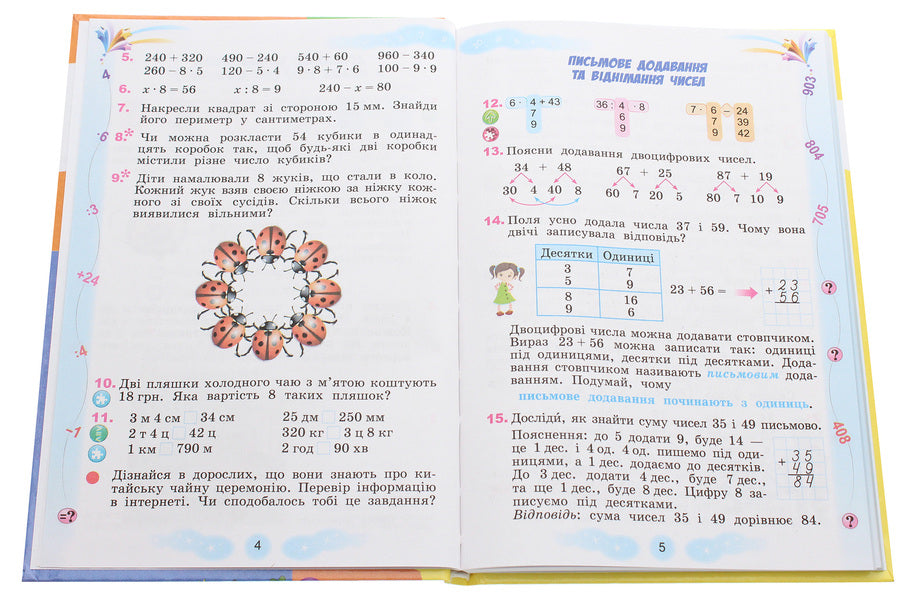 5. 240 + 320 490 − 240 540 + 60 960 − 340
260 − 8 · 5 120 − 5 · 4 9 · 8 + 7 · 6 100 − 9 · 9
6. x · 8 = 56 x : 8 = 9 240 − x = 80
7. Накресли квадрат зі стороною 15 мм. Знайди
його периметр у сантиметрах.
8.* Чи можна розкласти 54 кубики в одинад-
цять коробок так, щоб будь-які дві коробки
містили різне число кубиків?
9.* Діти намалювали 8 жуків, що стали в коло.
Кожний жук взяв своєю ніжкою за ніжку кож-
ного зі своїх сусідів. Скільки всього ніжок
виявилися вільними?
10. Дві пляшки холодного чаю з м’ятою коштують
18 грн. Яка вартість 8 таких пляшок?
11. 3 м 4 см 34 см 25 дм 250 мм
2 т 4 ц 42 ц 320 кг 3 ц 8 кг
1 км 790 м 2 год 90 хв
Дізнайся в дорослих, що вони знають про ки-
тайську чайну церемонію. Перевір інформацію
в інтернеті. Чи сподобалось тобі це завдання?
4
:6
:3
+24
:4
−1
=?
4
ПИСЬМОВЕ ДОДАВАННЯ
ТА ВІДНІМАННЯ ЧИСЕЛ
12. 6 · 4 + 43 36 : 4 · 8 7 · 6 − 24
7 6 7 39
9 9 9 42
13. Поясни додавання двоцифрових чисел.
34 + 48 67 + 25 87 + 19
30 4 40 8 60 7 20 5 80 7 10 9
14. Поля усно додала числа 37 і 59. Чому вона
двічі записувала відповідь?
Десятки Одиниці
3 7
5 9
8 16
9 6
23 + 56 =
23
+
56
Двоцифрові числа можна додавати стовпчиком.
Вираз 23 + 56 можна записати так: одиниці
під одиницями, десятки під десятками. Дода-
вання стовпчиком називають письмовим дода-
ванням. Подумай, чому
письмове додавання починають з одиниць.
15. Досліди, як знайти суму чисел 35 і 49 письмово.
Пояснення: до 5 додати 9, буде 14 —
це 1 дес. і 4 од. 4 од. пишемо під оди-
ницями, а 1 дес. додаємо до десятків.
До 3 дес. додати 4 дес., буде 7 дес.,
та ще 1 дес., буде 8 дес. Цифру 8 за-
писуємо під десятками.
Відповідь: сума чисел 35 і 49 дорівнює 84.
35
+
49
84
903
804
705
?
?
408
?
5